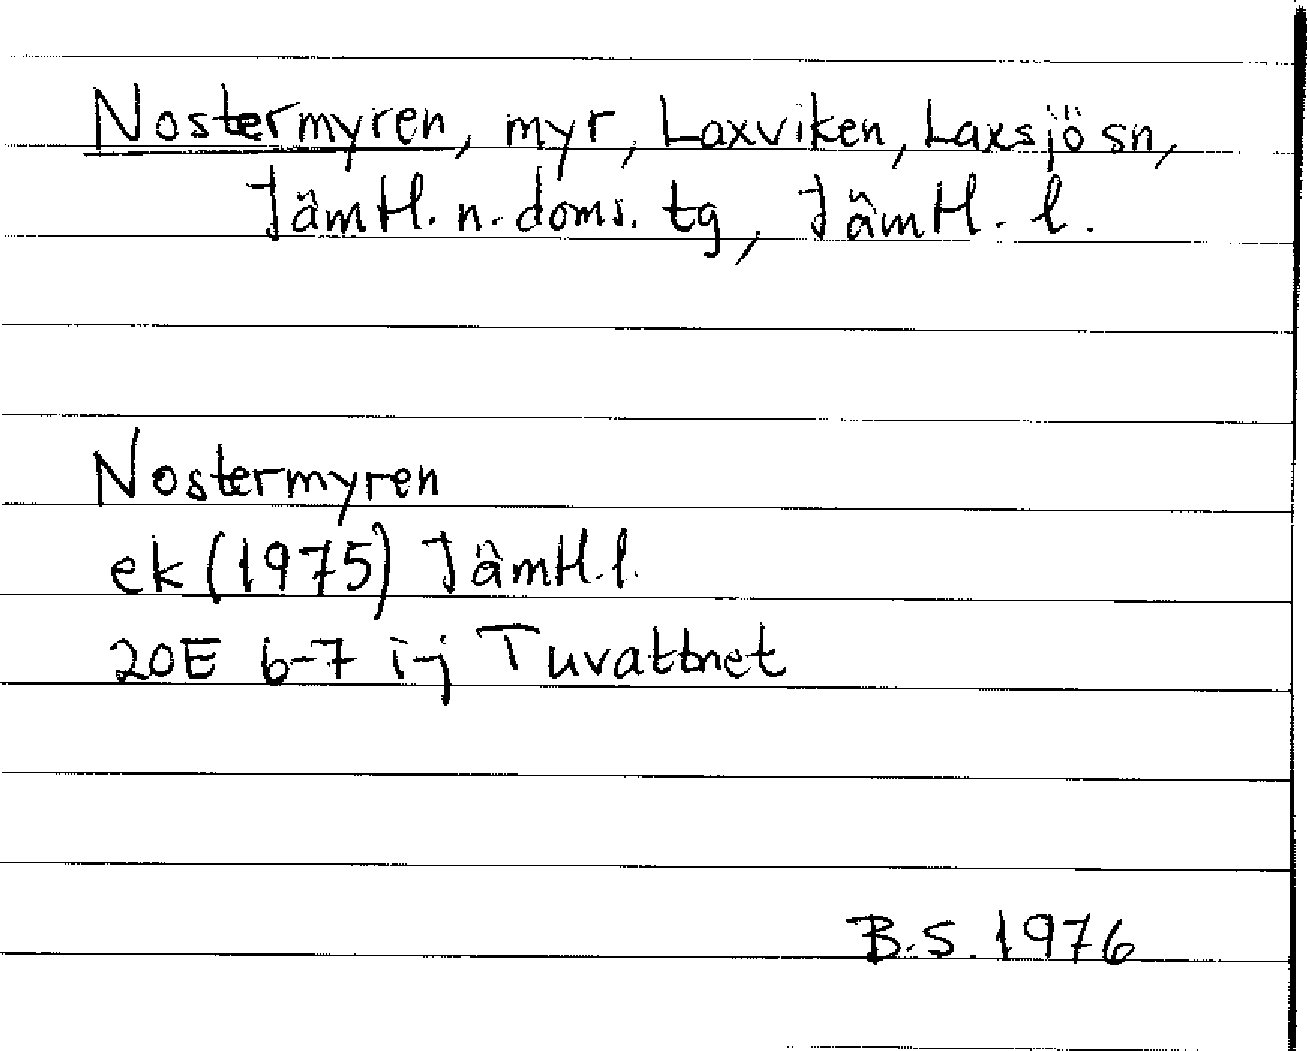 Nostermyren, myr, Laxviken, Laxsjö sn,
Jämtl. n. doms. tg, Jämtl. l.
Nostermyren
ek (1975) Jämtl. l.
20E 6-7 i-j Tuvattnet
B.S. 1976